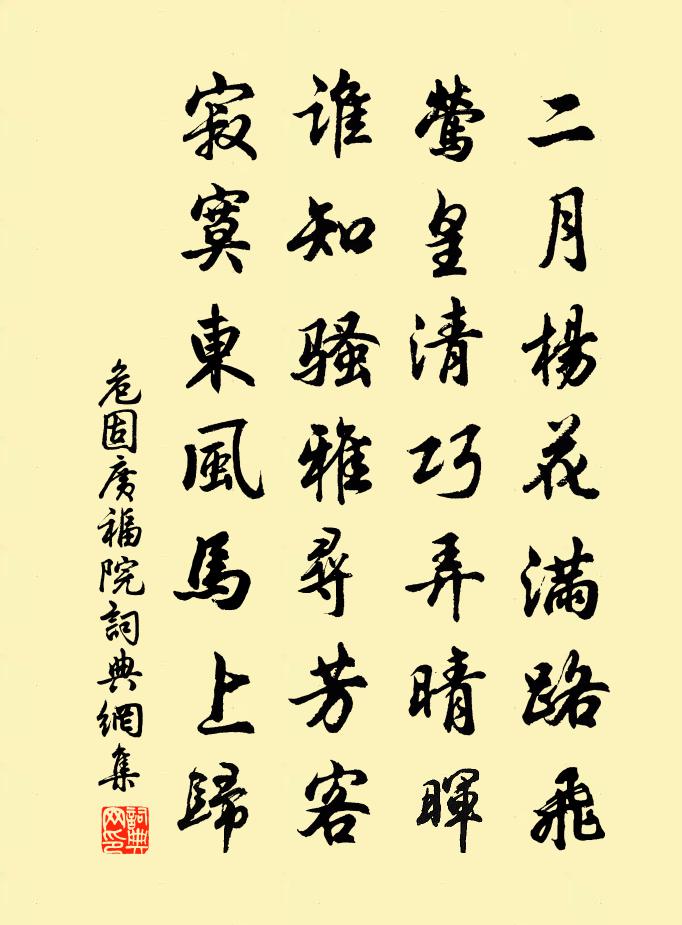 二月楊花滿路飛
鶯皇清巧弄晴暉
誰知騷雅尋芳客
寂寞東風馬上歸
危固廣福院詞典網集
詞典网印